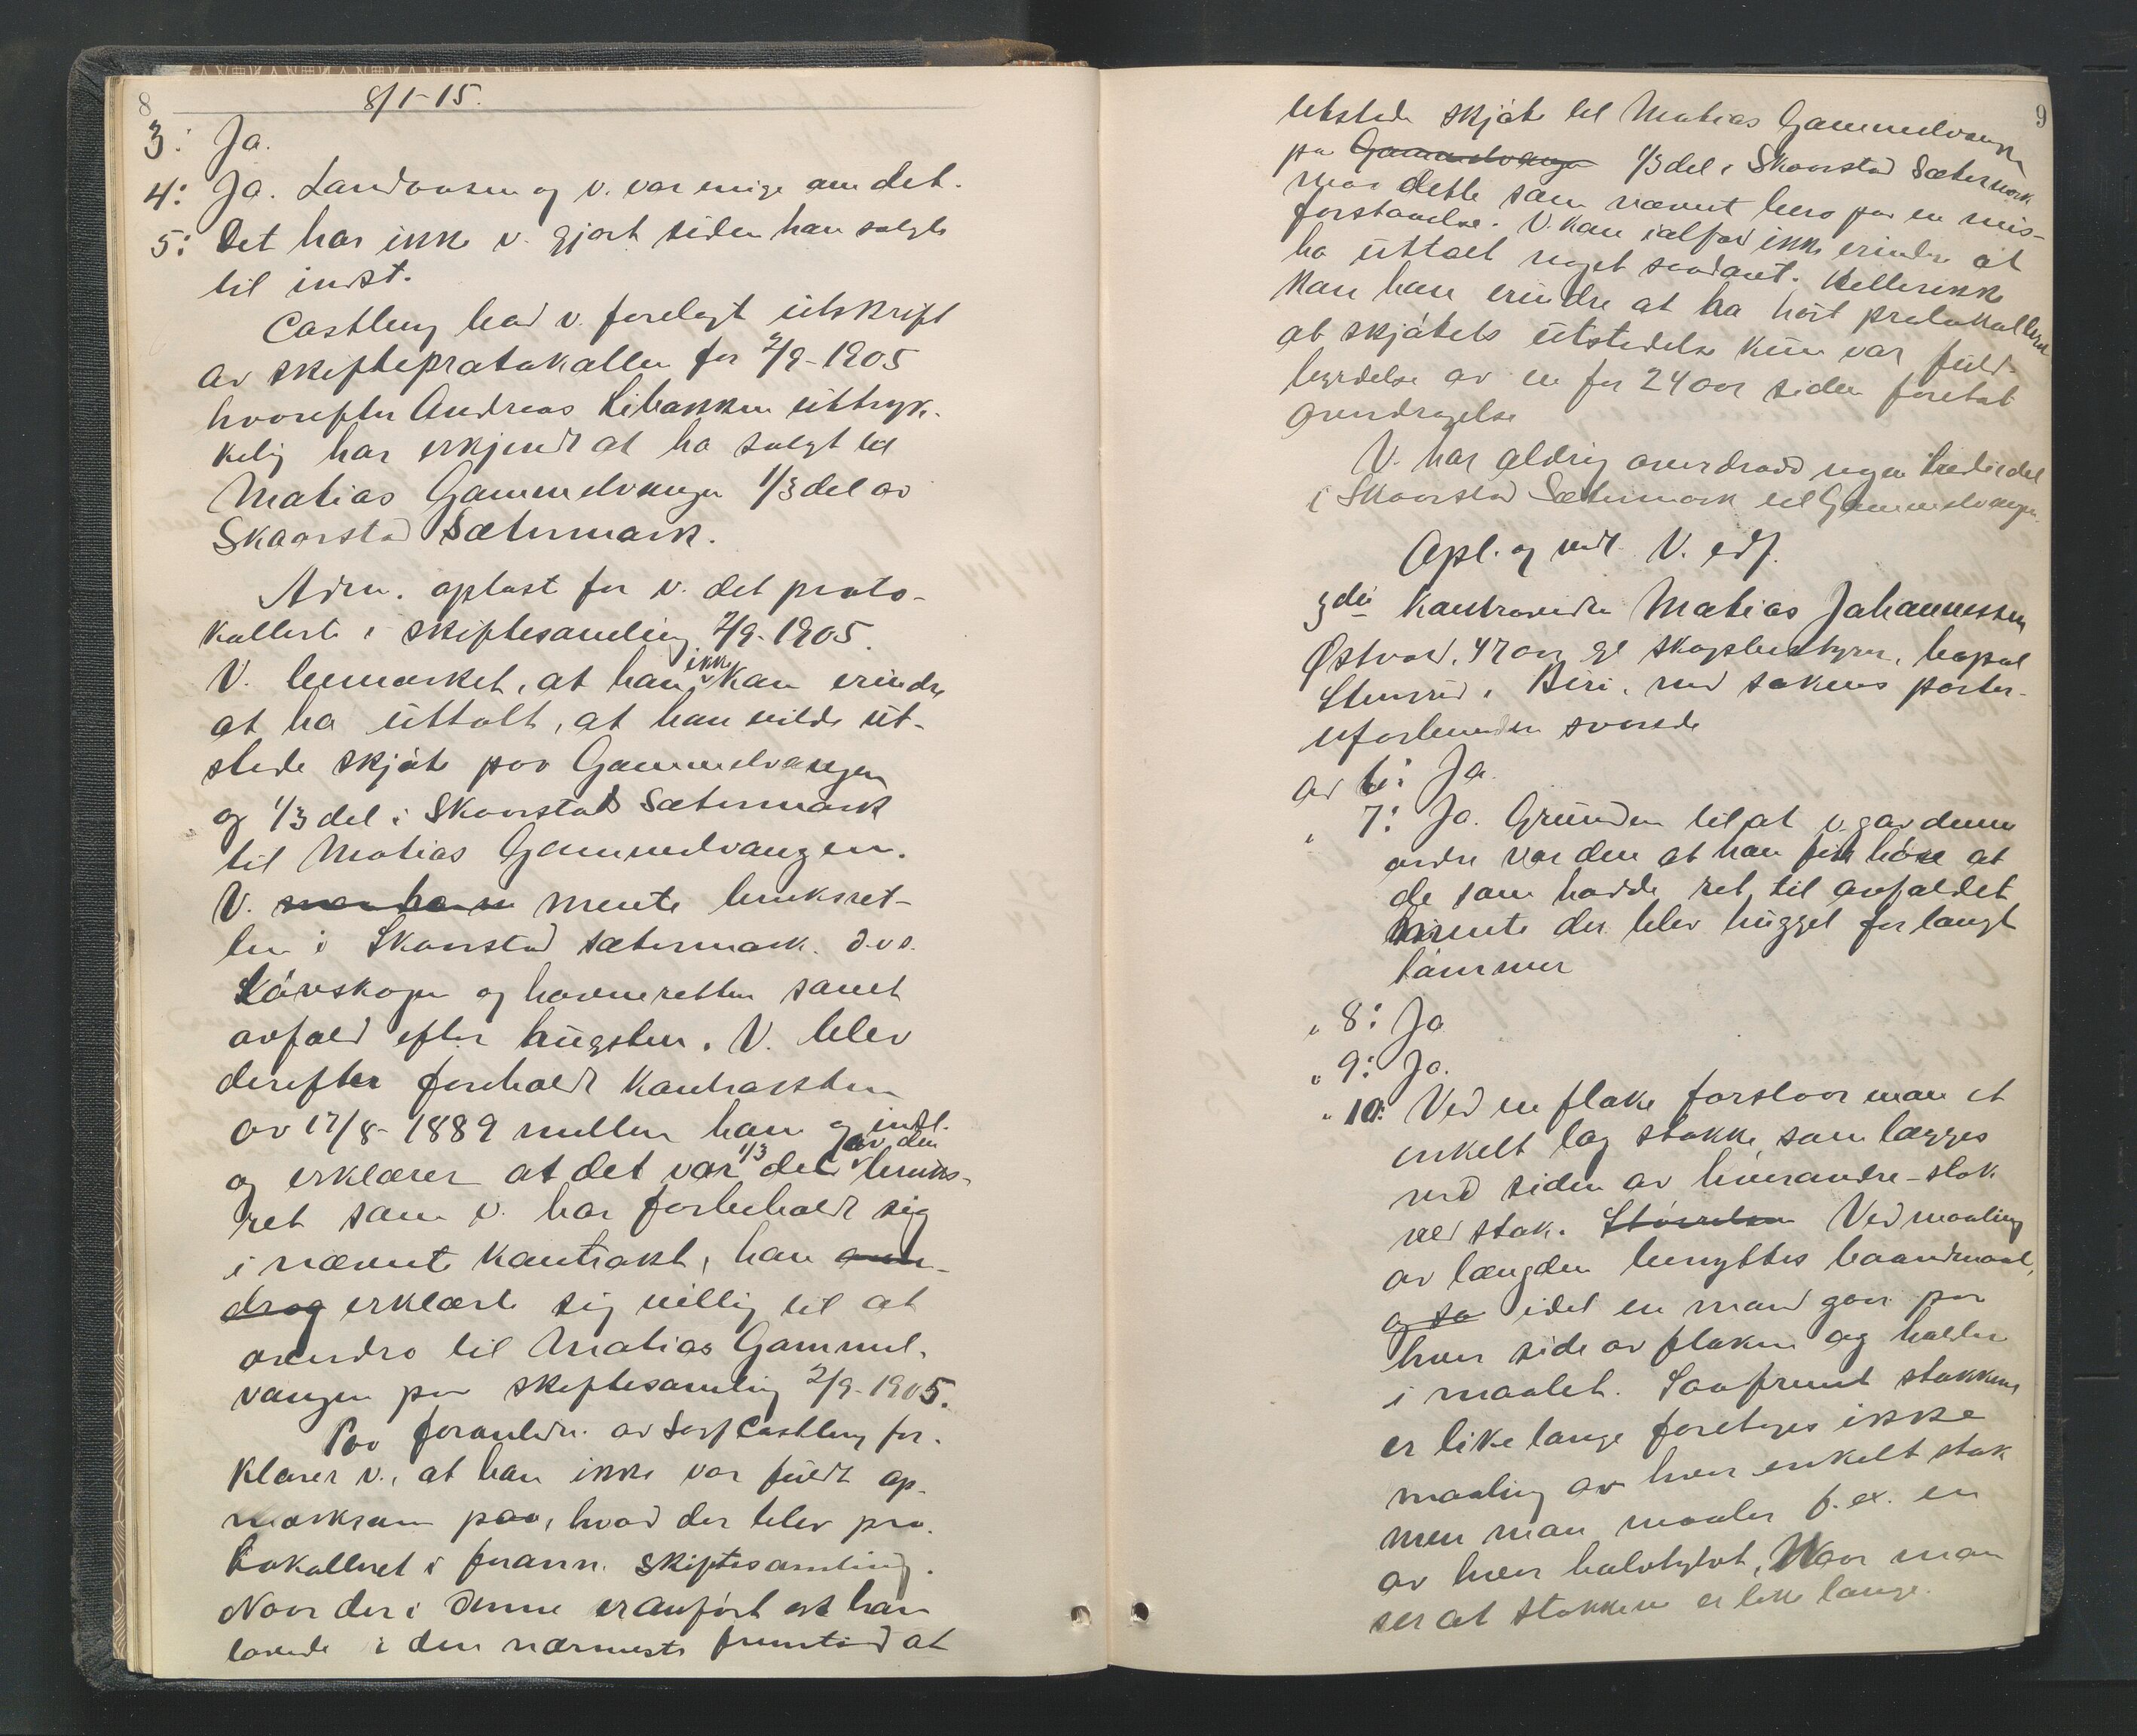 8
8/1-15.
3: Ja.
4: Ja. Landaasen og v. var enige om det.
5: Det har ikke v. gjort siden han solgte
til indst.
Castberg bad v. forelagt utskrift
av skifteprotokollen for 2/9-1905
hvorefter Andreas Libakken uttryk-
kelig har erkjendt at ha solgt til
Matias Gammelvangen 1/3 del av
Skaarstad Sætermark.
Adm. oplæst for v. det proto-
kollerte i skiftesamling 2/9-1905.
V. bemærket, at han ikke kan erindre
at ha uttalt, at han vilde ut-
stede skjøte paa Gammelvangen
og 1/3 del i Skaarstad Sætermark
til Matias Gammelvangen.
V. mente bruksret-
ten i Skaarstad sætermark. d.v.s.
Løvskogen og havneretten samt
avfald efter hugsten. V. blev
derefter foreholdt kontrakten
av 17/8-1889 mellem ham og indst.
og erklærer at det var 1/3 del av den bruks-
ret som v. har forbeholdt sig
i nævnte kontrakt, han over-
drog erklærte sig villig til at
overdra til Matias Gammel-
vangen paa skiftesamling 2/9-1905.
Paa foranledn. av Sorf Castberg for-
klarer v., at han ikke var fuldt op-
merksom paa, hvad der blev pro-
tokolleret i forann. skiftesamling.
Naar der i denne er anført at han
lovede i den nærmeste fremtid at
9
utstede skjøte til Matias Gammelvangen
paa Gammelvangen 1/3 del i Skaarstad Sætermark
maa dette som nævnt bero paa en mis-
forstaaelse. V. kan ialfald ikke erindre at
ha uttalt noget saadant. Heller ikke
kan han erindre at ha hørt protokolleret
at skjøtets utstedelse kun var fuld-
byrdelse av en for 24 aar siden foretat
overdragelse
V. har aldrig overdradd nogen trediedel
i Skaarstad Sætermark til Gammelvangen.
Opl. og vedt. V. edf.
3die Kontravidne Matias Johannessen
Østvold, 47 aar gl skogbestyrer, bopæl
Stensrud i Biri, med sakens parter
uforbunden svarede
av 6: Ja.
" 7: Ja. Grunden til at v. gav denne
ordre var den at han fik høre at
de som hadde ret til avfaldet
mente der blev hugget for langt
tømmer
" 8: Ja
" 9: Ja.
" 10: Ved en flake forstaar man et
enkelt lag stokke, som lægges
ved siden av hverandre - stok
ved stok. Størrelsen Ved maaling
av længden benyttes baandmaal,
og sa idet en mand gaar paa
hver side av flaken og holder
i maalet. Saafremt stokkene
er like lange foretages ikke
maaling av hver enkelt stok
men man maaler f. ex. en
av hver halvtylvt, Naar man
ser at stokkene er like lange.